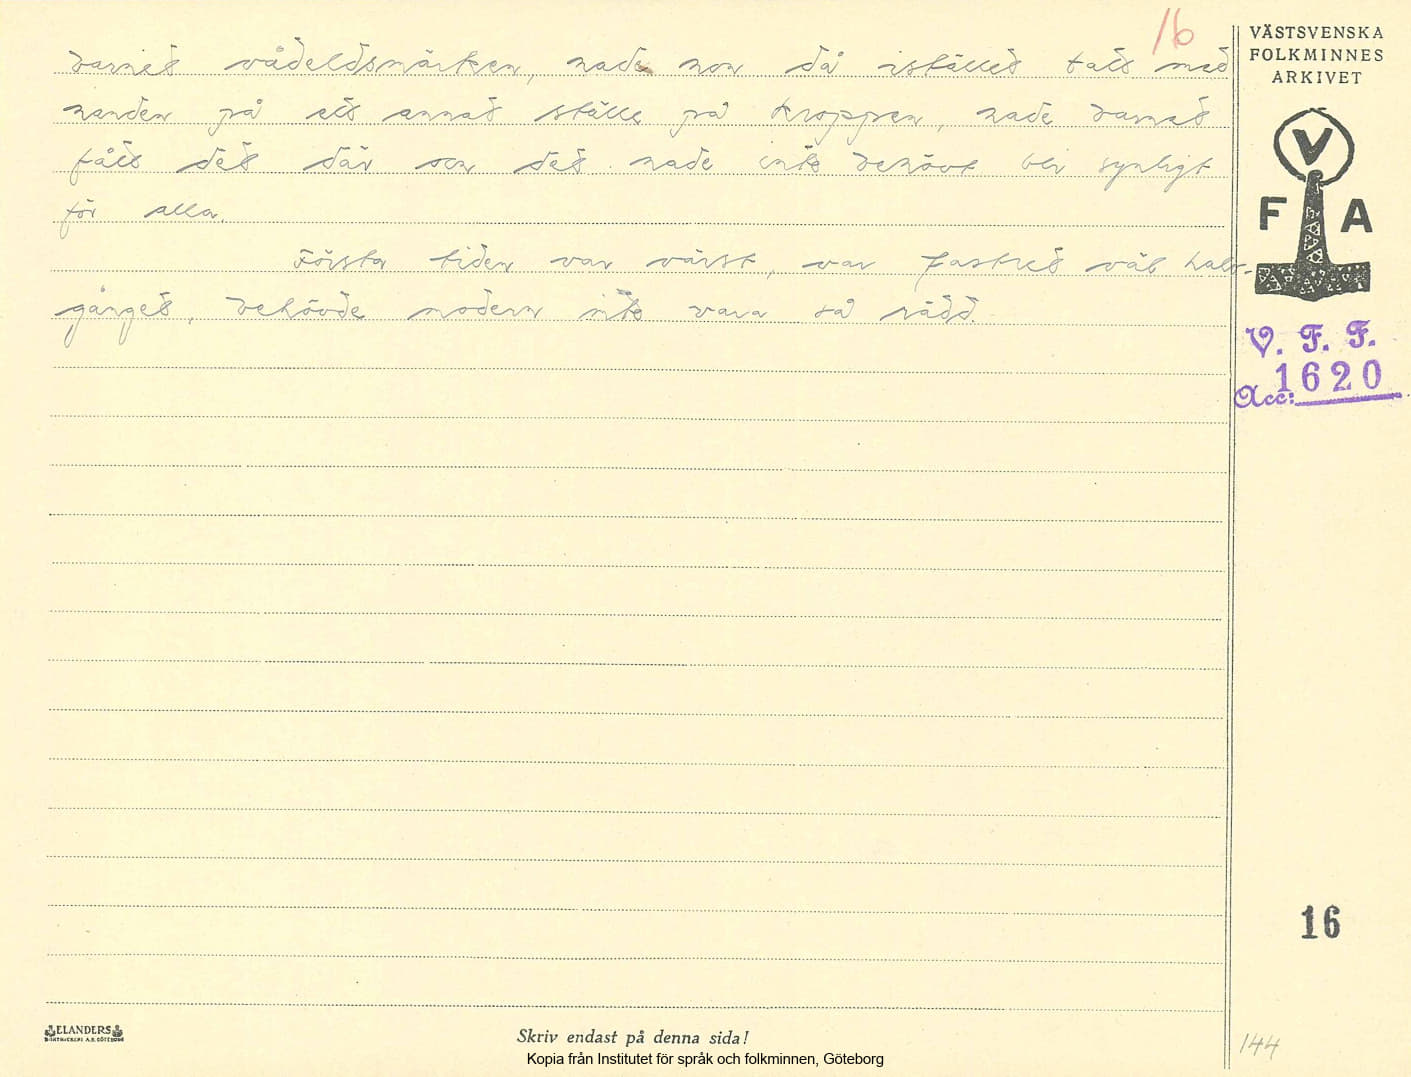 16
barnet vådeldsmärken, hade hon då istället tatt med
handen på ett annat ställe på kroppen, hade barnet
fått det där och det hade inte behövt bli synligt
för alla.
Första tiden var värst, var fostret väl halv-
gånget, behövde modern inte vara så rädd.
VÄSTSVENSKA
FOLKMINNES
ARKIVET
V
F A
V. F. F.
Acc: 1620
16
144
ELANDERS
BOKTRYCKERI A.B. GÖTEBORG
Skriv endast på denna sida!
Kopia från Institutet för språk och folkminnen, Göteborg